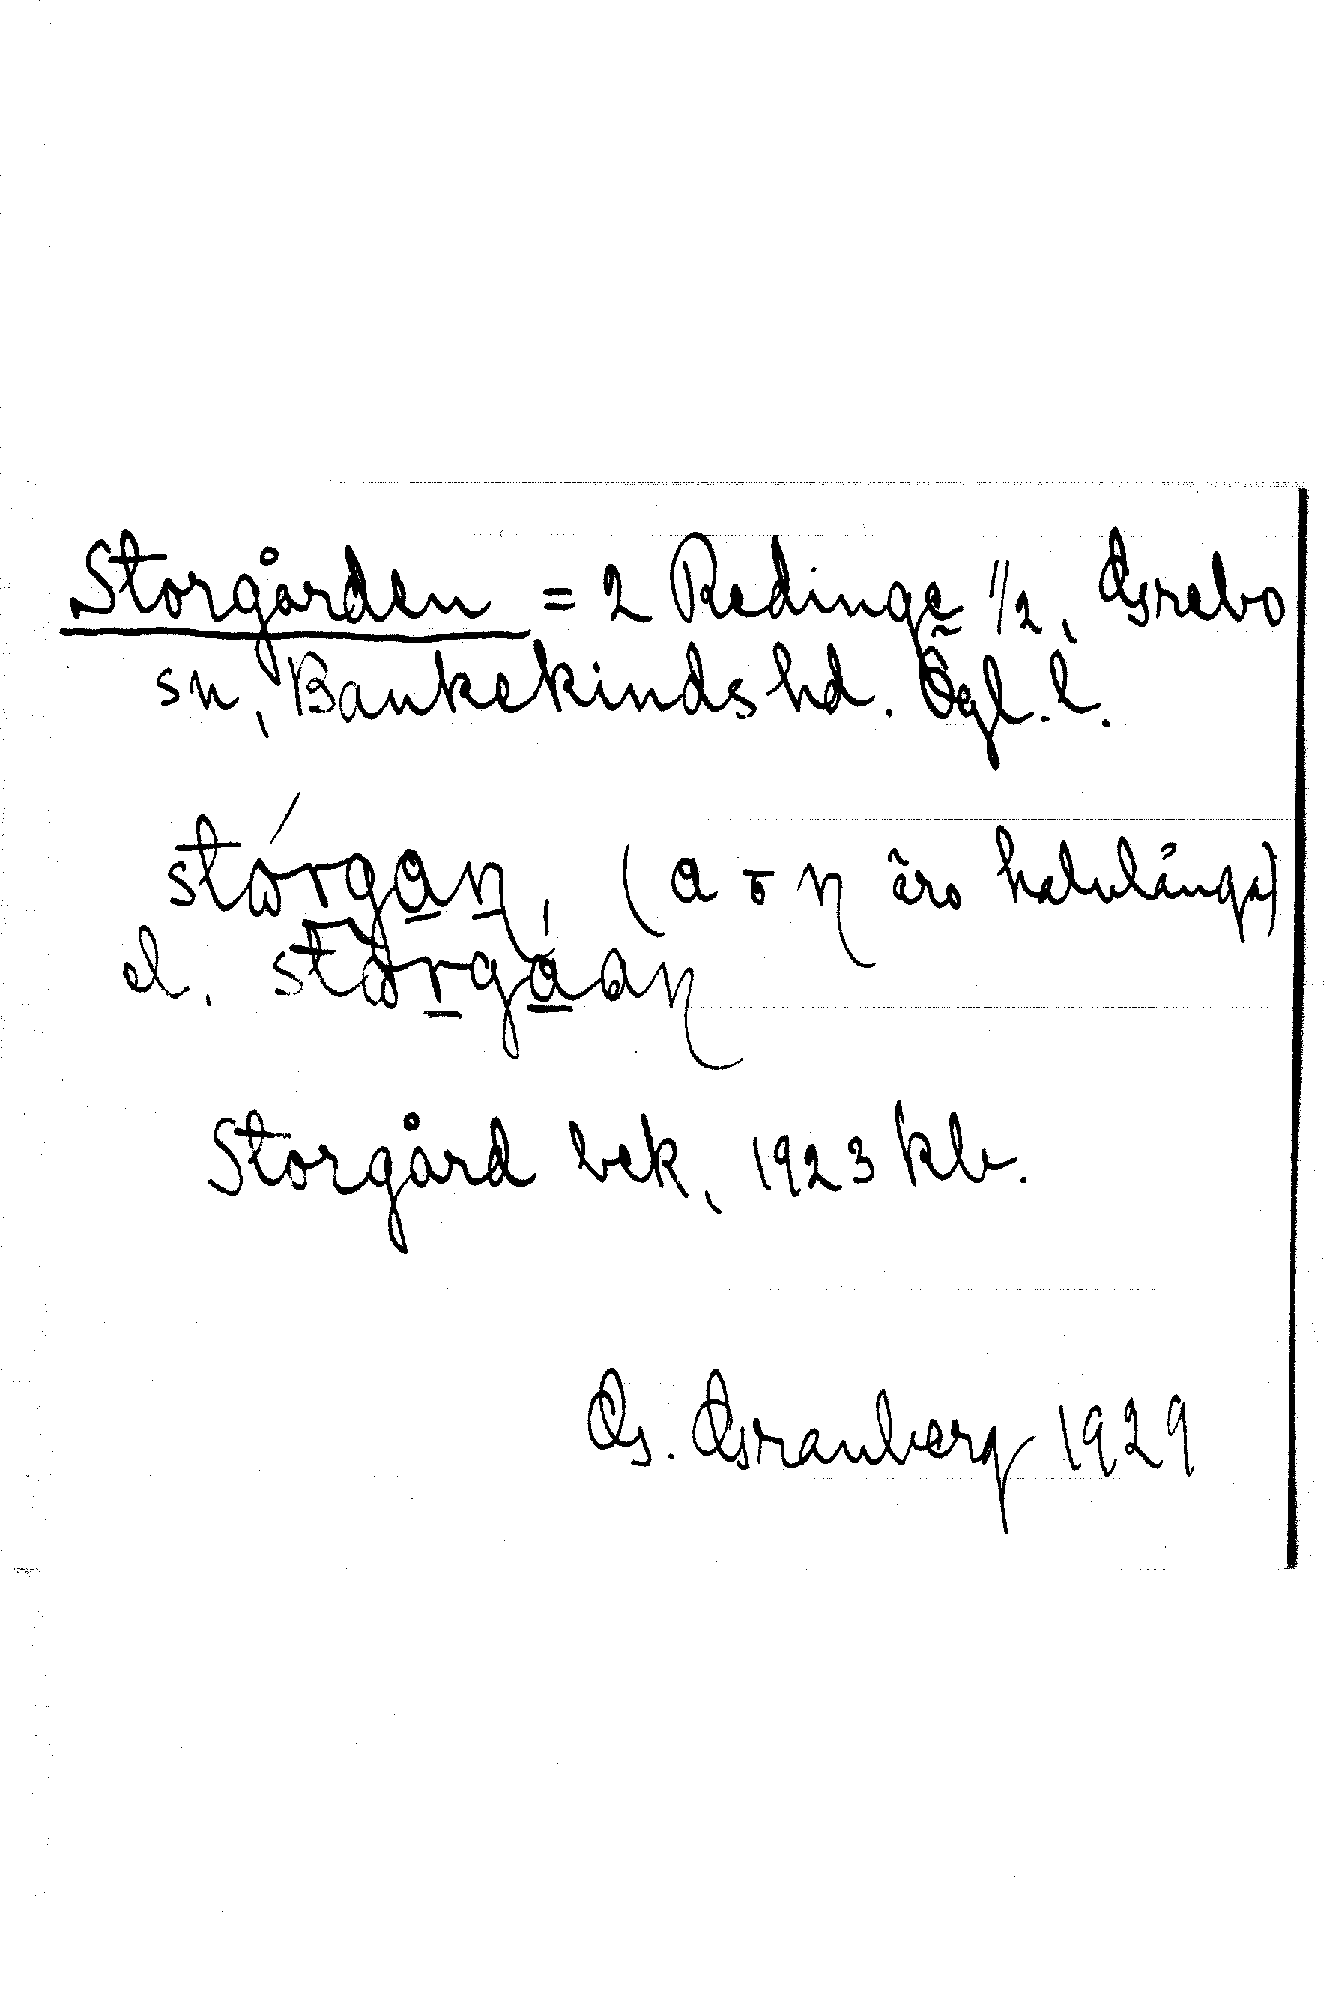 Storgården = 2 Redinge 1/2, Grebo
sn, Bankekinds hd. Ögl. l.
stórgan, (a o n äro halvlånga)
el. storgáan
Storgård bek, 1923 kb.
G. Granberg 1929